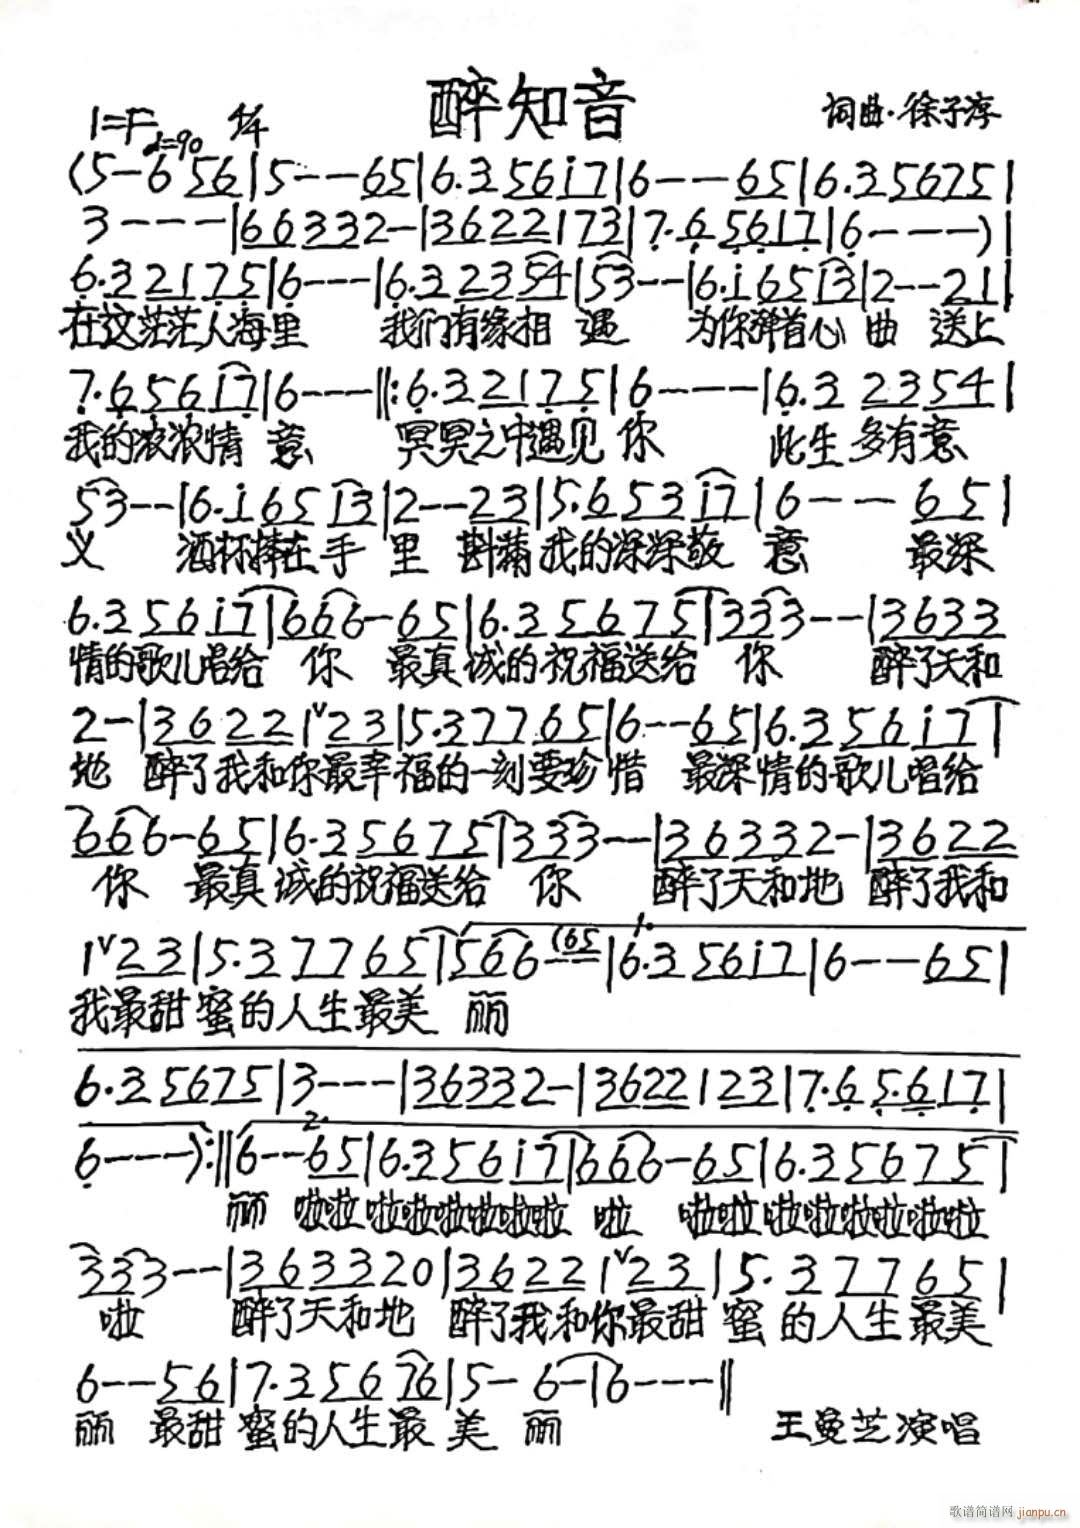 醉知音
1=F ♩=90 4/4
词曲·徐子淳
(5-6 56|5---65|6.3 5617|6---65|6.35675|
3----|66332-|3622173|7.65617|6----)|
6.32175|6---|6.32354|53--|6.16513|2--21|
在这茫茫人海里 我们有缘相 遇 为你弹首心 曲 送上
7.65617|6---‖:6.32175|6----|6.32354|
我的浓浓情 意 冥冥之中遇见 你 此生 多有意
53--|6.16513|2--23|5.65317|6---65|
义 酒杯捧在 手 里 斟满 我的深深敬 意 最深
6.35617|666-65|6.35675|333--|3633
情的歌儿唱给 你 最真诚的祝福送给 你 醉了天和
2-|36221ᵛ23|5.37765|6--65|6.35617|
地 醉了我和你最幸福的一刻要珍 惜 最深情的歌儿唱给
666-65|6.35675|333--|36332-|3622
你 最真诚的祝福送给 你 醉了天和地 醉了我和
1ᵛ23|5.37765|566--(65|1.6.35617|6--65|
我最甜蜜的人生最美 丽
6.35675|3---|36332-|3622123|7.65617|
6----):‖2.6--65|6.35617|666-65|6.35675|
丽 啦啦啦啦啦啦啦啦 啦 啦啦啦啦啦啦啦啦
333--|363320|36221ᵛ23|5.37765|
啦 醉了天和地 醉了我和你最甜 蜜的人生最美
6--56|7.35676|5-6-|6----‖
丽 最甜蜜的人生最 美 丽 王曼芝演唱
歌谱简谱网 jianpu.cn